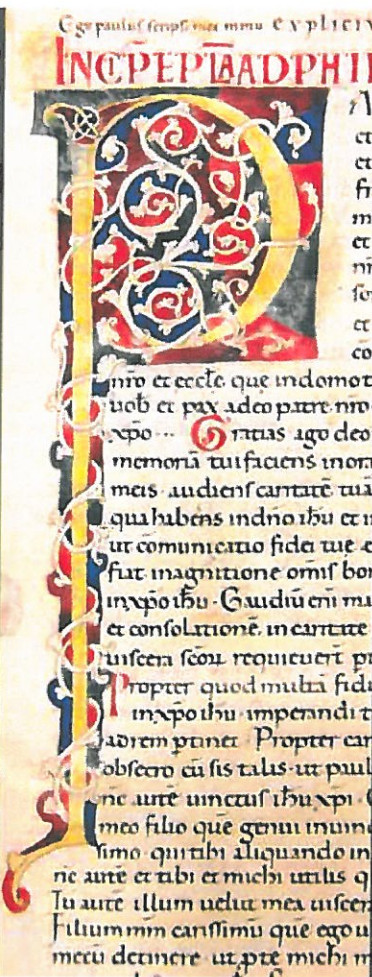 Ego paulus scripsi mea manu explicit
INCP EPLA AD PHI
P A
et
et
fr
m
et
nr
so
et
co
nro et eccle que indomo t
uob et pax adeo patre nro
xpo Gratias ago deo
memoria tui faciens inor
meis audiens caritate tua
qua habens indno ihu et i
ut comunicatio fidei tue e
fiat inagnitione omis bon
inxpo ihu Gaudiu eni ma
et consolatione in caritate
uiscera scoru requieuert p
Propter quod multa fidu
inxpo ihu imperandi t
ad rem ptinet Propter car
obsecro cu sis talis ut paul
nc aute uinctus ihu xpi
meo filio que genui inuinc
simo qui tibi aliquando in
nc aute et tibi et michi utilis q
Tu aute illum uelut mea uiscer
Filium m carissimu que ego u
mecu detinere ut pte michi m